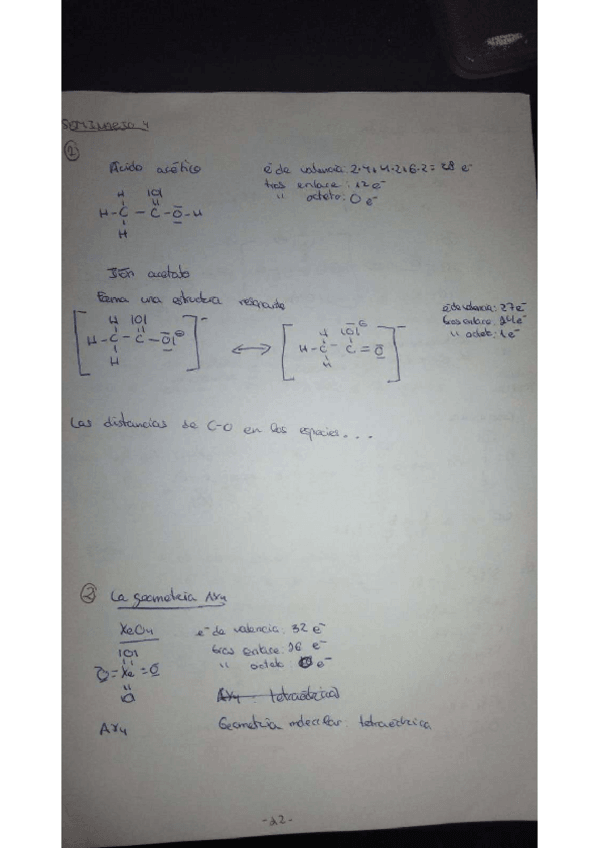 Seminario 4
①
Ácido acético
é de valencia: 2·4+4·2+6·2= 28 e-
tras enlace: 12e-
" octeto: 0 e-
H IOI
H-C-C-O-H
H
Ión acetato
Forma una estructura resonante
é de valencia: 27e-
tras enlace: 14e-
" octeto: 1e-
H IOI
H-C-C-OI⊖
H
↔
H IOI⊖
H-C-C=O
H
Las distancias de C-O en las especies...
② La geometría AX4
XeO4
e- de valencia: 32 e-
tras enlace: 16 e-
" octeto: e-
IOI
O=Xe=O
IOI
AX4: tetraédrica
AX4
Geometría molecular: tetraédrica
-22-